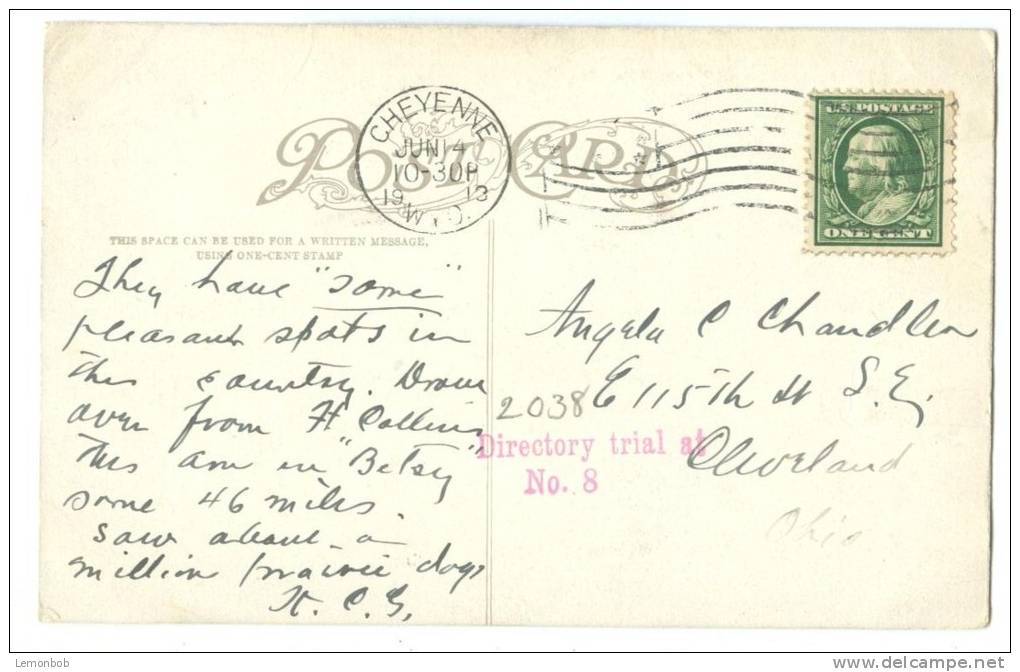 POST CARD
CHEYENNE
JUN 14
10-30P
1913
WYO.
U.S. POSTAGE
ONE CENT
THIS SPACE CAN BE USED FOR A WRITTEN MESSAGE,
USING ONE-CENT STAMP
They have "some"
pleasant spots in
this country. Drove
over from Ft Collins
this am in "Betsy"
some 46 miles.
saw about a
million prairie dogs
H. C. G.
Angela C Chandler
2038 E 115th St S.E.
Directory trial at
No. 8
Cleveland
Ohio
Lemonbob
www.delcampe.net